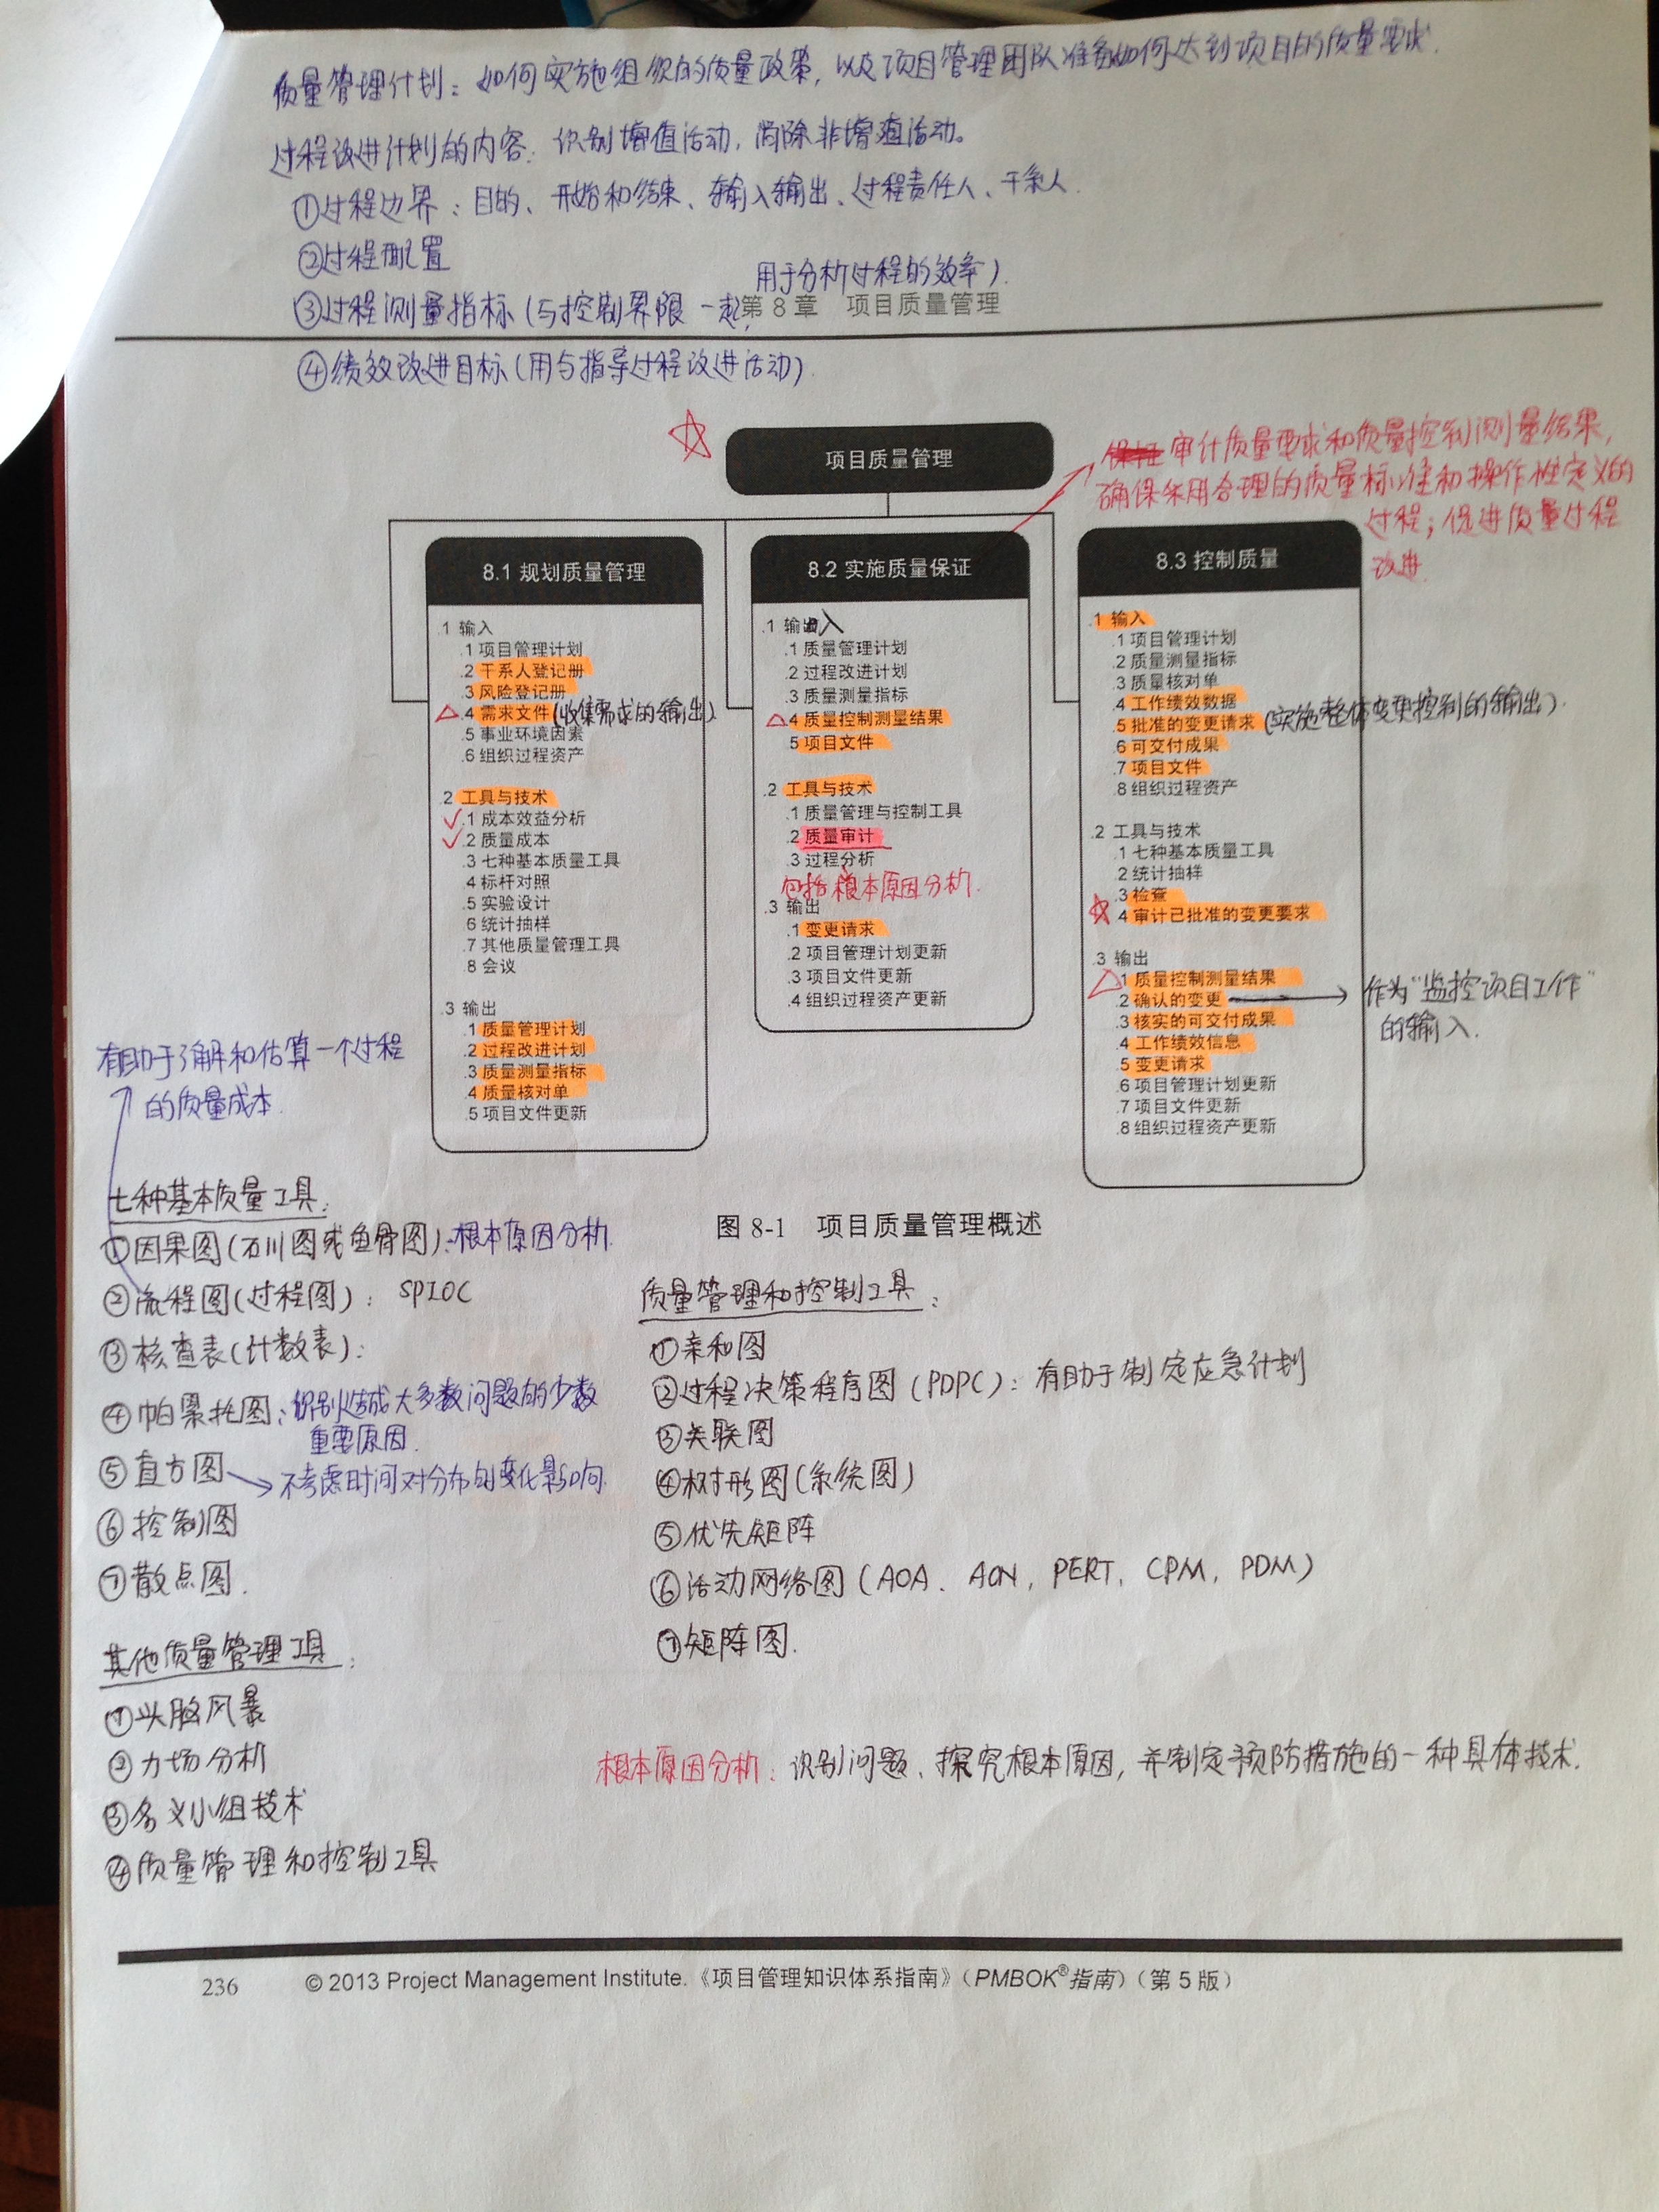 质量管理计划：如何实施组织的质量政策，以及项目管理团队准备如何达到项目的质量要求.
过程改进计划的内容：识别增值活动，消除非增值活动。
①过程边界：目的、开始和结束、输入输出、过程责任人、干系人.
②过程配置
③过程测量指标（与控制界限一起,
用于分析过程的效率）.
第 8 章 项目质量管理
④绩效改进目标（用与指导过程改进活动）.
项目质量管理
审计质量要求和质量控制测量结果,
确保采用合理的质量标准和操作性定义的
过程；促进质量过程
改进.
8.1 规划质量管理
.1 输入
.1 项目管理计划
.2 干系人登记册
.3 风险登记册
.4 需求文件（收集需求的输出）
.5 事业环境因素
.6 组织过程资产
.2 工具与技术
.1 成本效益分析
.2 质量成本
.3 七种基本质量工具
.4 标杆对照
.5 实验设计
.6 统计抽样
.7 其他质量管理工具
.8 会议
.3 输出
.1 质量管理计划
.2 过程改进计划
.3 质量测量指标
.4 质量核对单
.5 项目文件更新
8.2 实施质量保证
.1 输入
.1 质量管理计划
.2 过程改进计划
.3 质量测量指标
.4 质量控制测量结果
.5 项目文件
.2 工具与技术
.1 质量管理与控制工具
.2 质量审计
.3 过程分析
包括根本原因分析.
.3 输出
.1 变更请求
.2 项目管理计划更新
.3 项目文件更新
.4 组织过程资产更新
8.3 控制质量
.1 输入
.1 项目管理计划
.2 质量测量指标
.3 质量核对单
.4 工作绩效数据
.5 批准的变更请求（实施整体变更控制的输出）.
.6 可交付成果
.7 项目文件
.8 组织过程资产
.2 工具与技术
.1 七种基本质量工具
.2 统计抽样
.3 检查
.4 审计已批准的变更要求
.3 输出
.1 质量控制测量结果
.2 确认的变更
.3 核实的可交付成果
.4 工作绩效信息
.5 变更请求
.6 项目管理计划更新
.7 项目文件更新
.8 组织过程资产更新
作为“监控项目工作”
的输入.
有助于了解和估算一个过程
的质量成本.
图 8-1 项目质量管理概述
七种基本质量工具：
①因果图（石川图或鱼骨图）：根本原因分析.
②流程图（过程图）：SPIOC
③核查表（计数表）：
④帕累托图：识别造成大多数问题的少数
重要原因.
⑤直方图→不考虑时间对分布的变化影响.
⑥控制图
⑦散点图.
质量管理和控制工具：
①亲和图
②过程决策程序图（PDPC）：有助于制定应急计划
③关联图
④树形图（系统图）
⑤优先矩阵
⑥活动网络图（AOA、AON, PERT, CPM, PDM）
⑦矩阵图.
其他质量管理工具：
①头脑风暴
②力场分析
③名义小组技术
④质量管理和控制工具
根本原因分析：识别问题、探究根本原因，并制定预防措施的一种具体技术.
236 © 2013 Project Management Institute.《项目管理知识体系指南》（PMBOK®指南）（第 5 版）